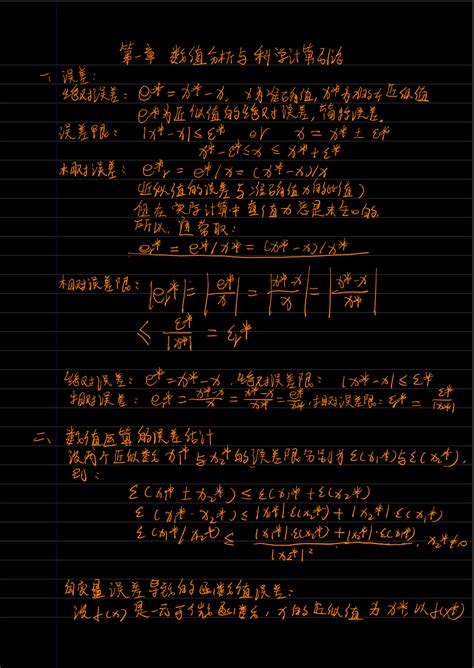 第一章 数值分析与科学计算引论
一、误差：
绝对误差：e* = x* - x， x为准确值，x*为x的一个近似值
e*为近似值的绝对误差，简称误差。
误差限： |x* - x| ≤ ε* or x = x* ± ε*
x* - ε* ≤ x ≤ x* + ε*
相对误差： e*r = e*/x = (x* - x)/x
(近似值的误差与准确值x的比值)
但在实际计算中真值x总是未知的，
所以，通常取：
er* = e*/x* = (x* - x)/x*
相对误差限： |er*| = |e*/x| = |x*-x/x| = |x*-x/x*|
≤ ε*/|x*| = εr*
绝对误差： e* = x* - x，绝对误差限： |x* - x| ≤ ε*
相对误差： er* = x*-x/x = x*-x/x* = e*/x*，相对误差限：εr* = ε*/|x*|
二、数值运算的误差估计
设两个近似数 x1* 与 x2* 的误差限分别为 ε(x1*) 与 ε(x2*)，
则：
ε(x1* ± x2*) ≤ ε(x1* + ε(x2*)
ε(x1* · x2*) ≤ |x1*|·ε(x2*) + |x2*|·ε(x1*)
ε(x1*/x2*) ≤ |x1*|·ε(x2*) + |x2*|·ε(x1*)/|x2*|²，x2* ≠ 0
自变量误差导致的函数值误差：
设 f(x) 是一元可微函数，x的近似值为 x* 以 f(x*)